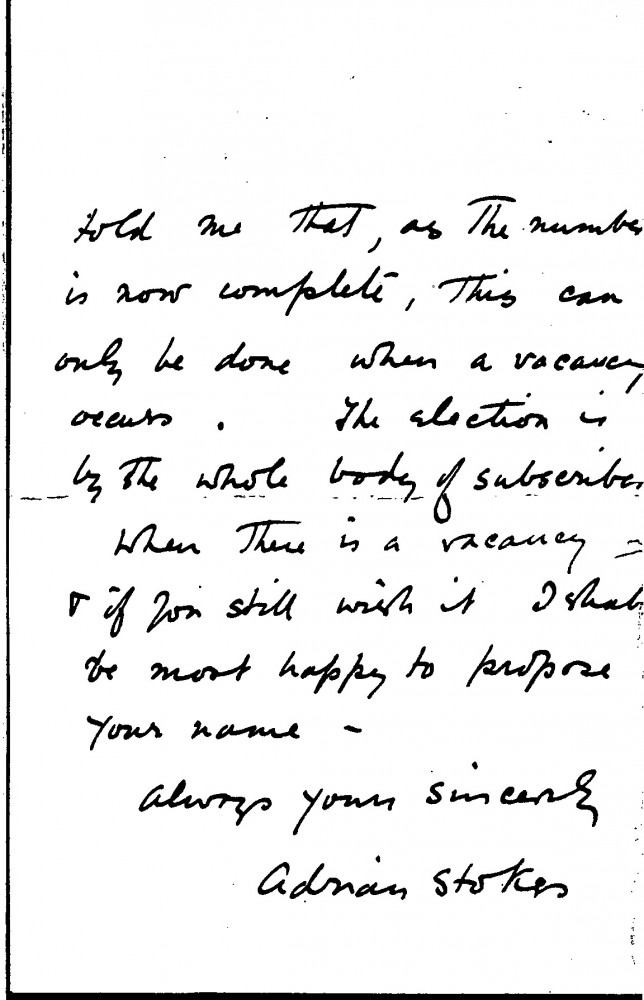 told me that, as the number
is now complete, this can
only be done when a vacancy
occurs. The election is
by the whole body of subscribers
when there is a vacancy =
& if you still wish it I shall
be most happy to propose
your name –
Always yours sincerely
Adrian Stokes